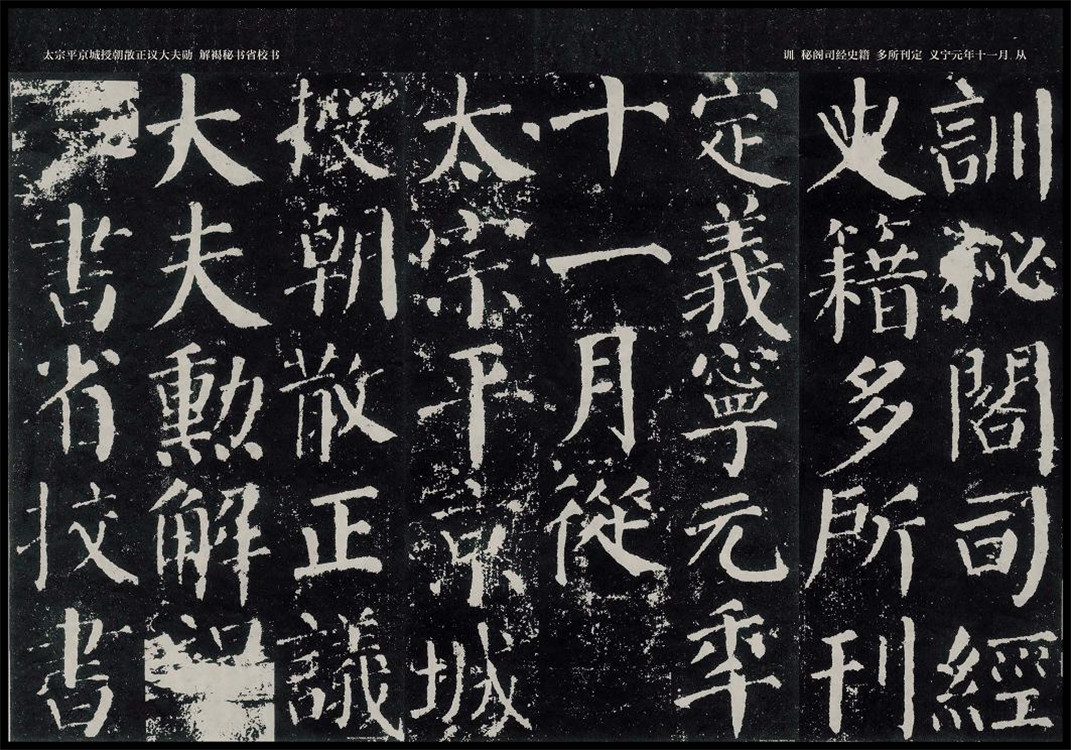 训 秘阁司经史籍 多所刊定 义宁元年十一月 从
太宗平京城授朝散正议大夫勋 解褐秘书省校书
訓秘閣司經
史籍多所刊
定義寧元年
十一月從
太宗平京城
授朝散正議
大夫勳解
書省挍書